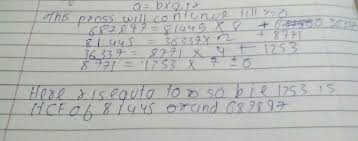 a = bxq+r
This pross will contenue till r=0
687897 = 81445 x 8 +
81445 = 36337 x 2 + 8771
36337 = 8771 x 4 + 1253
8771 = 1253 x 7 + 0
Here r is equto to 0 so b i.e 1253 is
HCF of 81445 and 687897